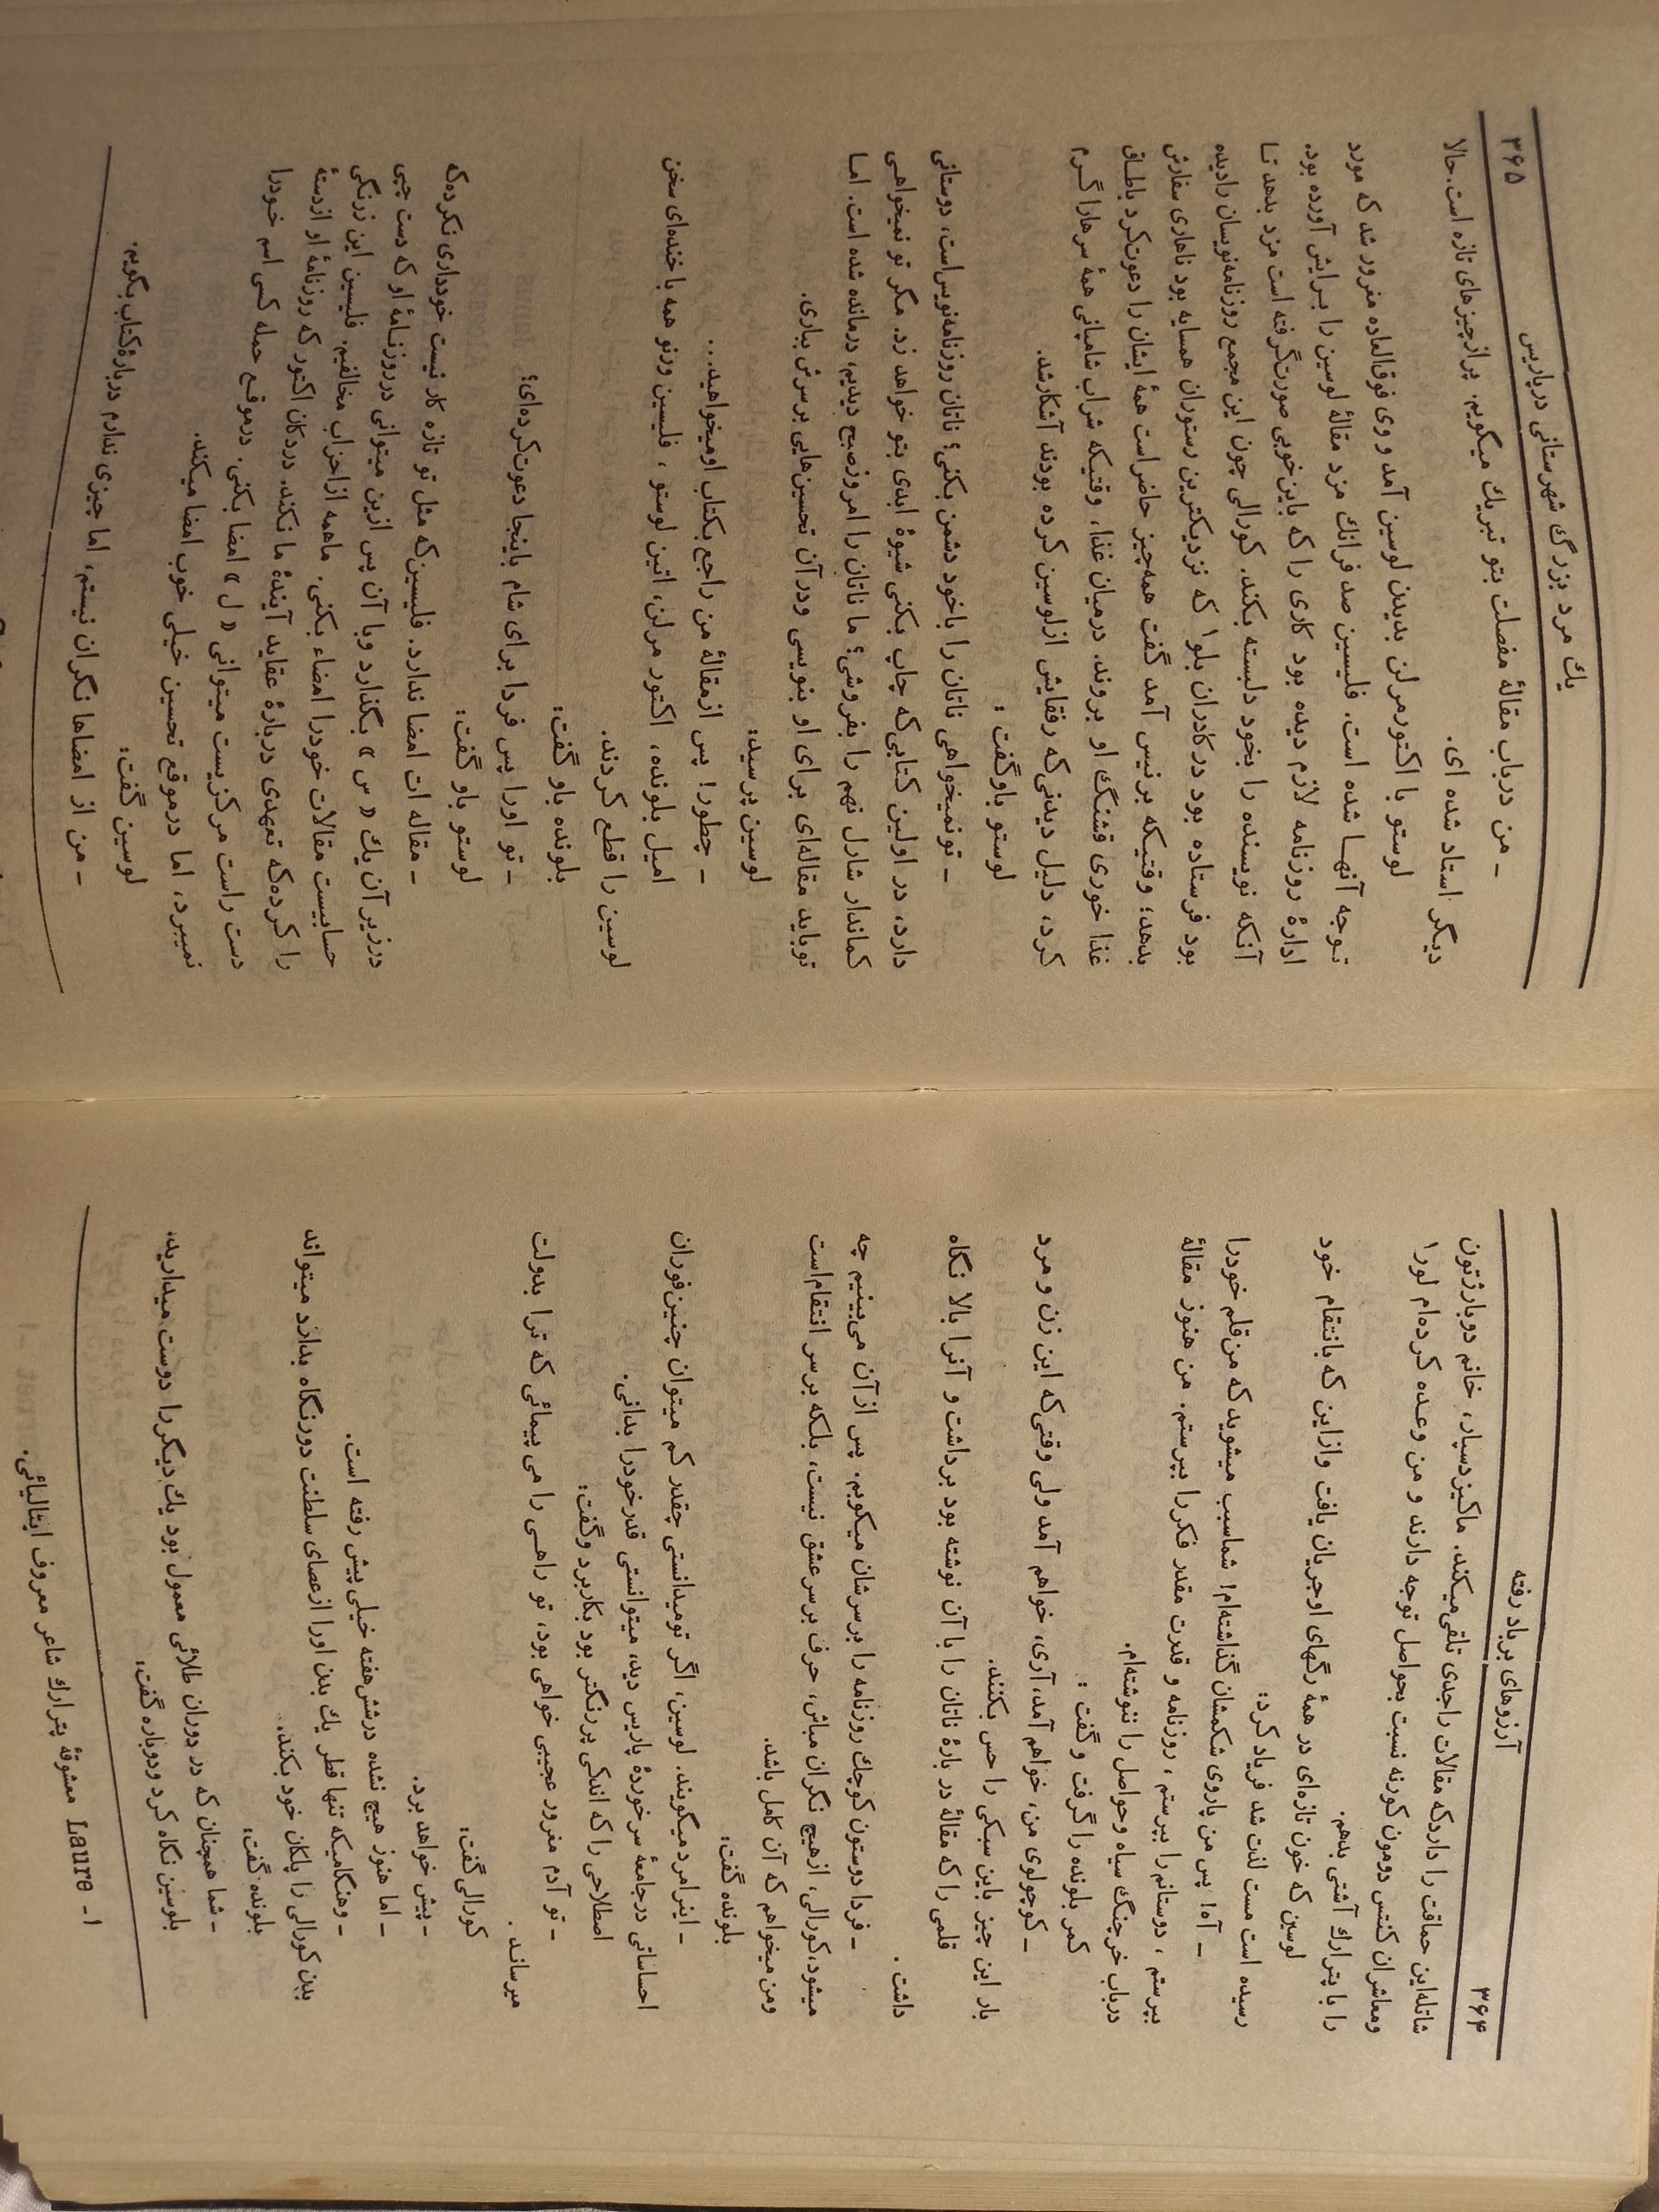 ۳۶۴
آرزوهای برباد رفته
شاتله‌این حماقت را داردکه مقالات راجدی تلقی‌میکند. ماکیزدسپار، خانم دوبارژتون
ومعاشران کنتس دومون‌کورنه نسبت بحواصل توجه دارند و من وعـده کرده‌ام لورا۱
را با پترارك آشتی بدهم.
لوسین که خون تازه‌ای در همهٔ رگهای اوجریان یافت وازاین که بانتقام خود
رسیده است مست لذت شد فریاد کرد:
ـ آه! پس من پاروی شکمشان گذاشته‌ام! شماسبب میشوید که من‌قلم خودرا
بپرستم ، دوستانم‌را بپرستم ، روزنامه و قدرت مقتدر فکررا بپرستم. من هنوز مقالهٔ
درباب خرچنگ سیاه وحواصل را ننوشته‌ام.
کمر بلونده راگرفت و گفت :
ـ کوچولوی من، خواهم آمد، آری، خواهم آمد ولی وقتی‌که این زن و مرد
بار این چیز باین سبکی را حس بکنند.
قلمی را که مقالهٔ در بارهٔ ناتان را با آن نوشته بود برداشت و آنرا بالا نگاه
داشت .
ـ فردا دوستون کوچك روزنامه را برسرشان میکوبم. پس از آن می‌بینیم چه
میشود،کورالی، ازهیچ نگران مباش، حرف برسرعشق نیست، بلکه برسر انتقام‌است
ومن میخواهم که آن کامل باشد.
بلونده گفت:
ـ اینرامرد میگویند. لوسین، اگر تومیدانستی چقدر کم میتوان چنین‌فوران
احساساتی درجامعهٔ سرخوردهٔ پاریس دید، میتوانستی قدرخودرا بدانی.
اصطلاحی راکه اندکی پررنگتر بود بکاربرد وگفت:
ـ تو آدم مغرور عجیبی خواهی بود، تو راهـی را می پیمائی که ترا بدولت
میرسانـد .
کورالی گفت:
ـ پیش خواهد برد.
ـ اما هنوز هیچ نشده درشش‌هفته خیلی پیش رفته است.
ـ وهنگامیکه تنها قطر یك بدن اورا ازعصای سلطنت دورنگاه بدارد میتواند
بدن کورالی را پلکان خود بکند.
بلونده گفت:
ـ شما همچنان که در دوران طلائی معمول بود یك‌دیگررا دوست میدارید.
بلوسین نگاه کرد ودوباره گفت:
۱ـ Laure معشوقهٔ پترارك شاعر معروف ایتالیائی.
یك مرد بزرگ شهرستانی درپاریس
۳۶۵
ـ من درباب مقالهٔ مفصلت بتو تبریك میگویم. پرازچیزهای تازه است. حالا
دیگر استاد شده ای.
لوستو با اکتورمرلن بدیدن لوسین آمد و وی فوق‌العاده مغرور شد که مورد
تـوجه آنهـا شده است. فلیسین صد فرانك مزد مقالهٔ لوسین را بـرایش آورده بود.
ادارهٔ روزنامه لازم دیده بود کاری را که باین‌خوبی صورت‌گرفته است مزد بدهد تـا
آنکه نویسنده را بخود دلبسته بکند. کورالی چون این مجمع روزنامه‌نویسان رادیده
بود فرستاده بود درکادران بلو۱ که نزدیکترین رستوران همسایه بود ناهاری سفارش
بدهد؛ وقتـیکه برنیس آمد گفت همه‌چیز حاضراست همهٔ ایشان را دعوت‌کرد باطـاق
غذا خوری قشنگ او بروند. درمیان غذا، وقتیکه شراب شامپانی همهٔ سرهارا گـرم
کرد، دلیل دیدنی‌که رفقایش ازلوسین کرده بودند آشکارشد.
لوستو باوگفت :
ـ تو نمیخواهی ناتان را باخود دشمن بکنی؟ ناتان روزنامه‌نویس‌است، دوستانی
دارد، در اولین کتابی‌که چاپ بکنی شیوهٔ ابدی بتو خواهد زد. مگر تو نمیخواهـی
کماندار شارل نهم را بفروشی؟ ما ناتان را امروزصبح دیدیم، درمانده شده است. امـا
توباید مقاله‌ای برای او بنویسی ودر آن تحسین‌هایی برسرش بباری.
لوسین پرسید:
ـ چطور! پس ازمقالهٔ من راجع بکتاب اومیخواهید...
امیل بلونده، اکتور مرلن، اتین لوستو ، فلیسین ورنو همه با خنده‌ای سخن
لوسین را قطع کردند.
بلونده باو گفت:
ـ تو اورا پس فردا برای شام باینجا دعوت‌کرده‌ای؛
لوستو باو گفت:
ـ مقاله ات امضا ندارد. فلیسین‌که مثل تو تازه کار نیست خودداری نکرده‌که
درزیر آن یك « س » بگذارد وبا آن پس ازین میتوانی درروزنـامهٔ او که دست چپی
حسابیست مقالات خودرا امضاء بکنی. ماهمه ازاحزاب مخالفیم. فلیسین این زرنگی
را کرده‌که تعهدی دربارهٔ عقاید آیندهٔ ما نکند. دردکان اکتور که روزنامهٔ او ازدستهٔ
دست راست مرکزیست میتوانی « ل » امضا بکنی. درموقـع حمله کسی اسم خـودرا
نمیبرد، اما درموقع تحسین خیلی خوب امضا میکند.
لوسین گفت:
ـ من از امضاها نگران نیستم، اما چیزی ندارم دربارهٔ کتاب بگویم.